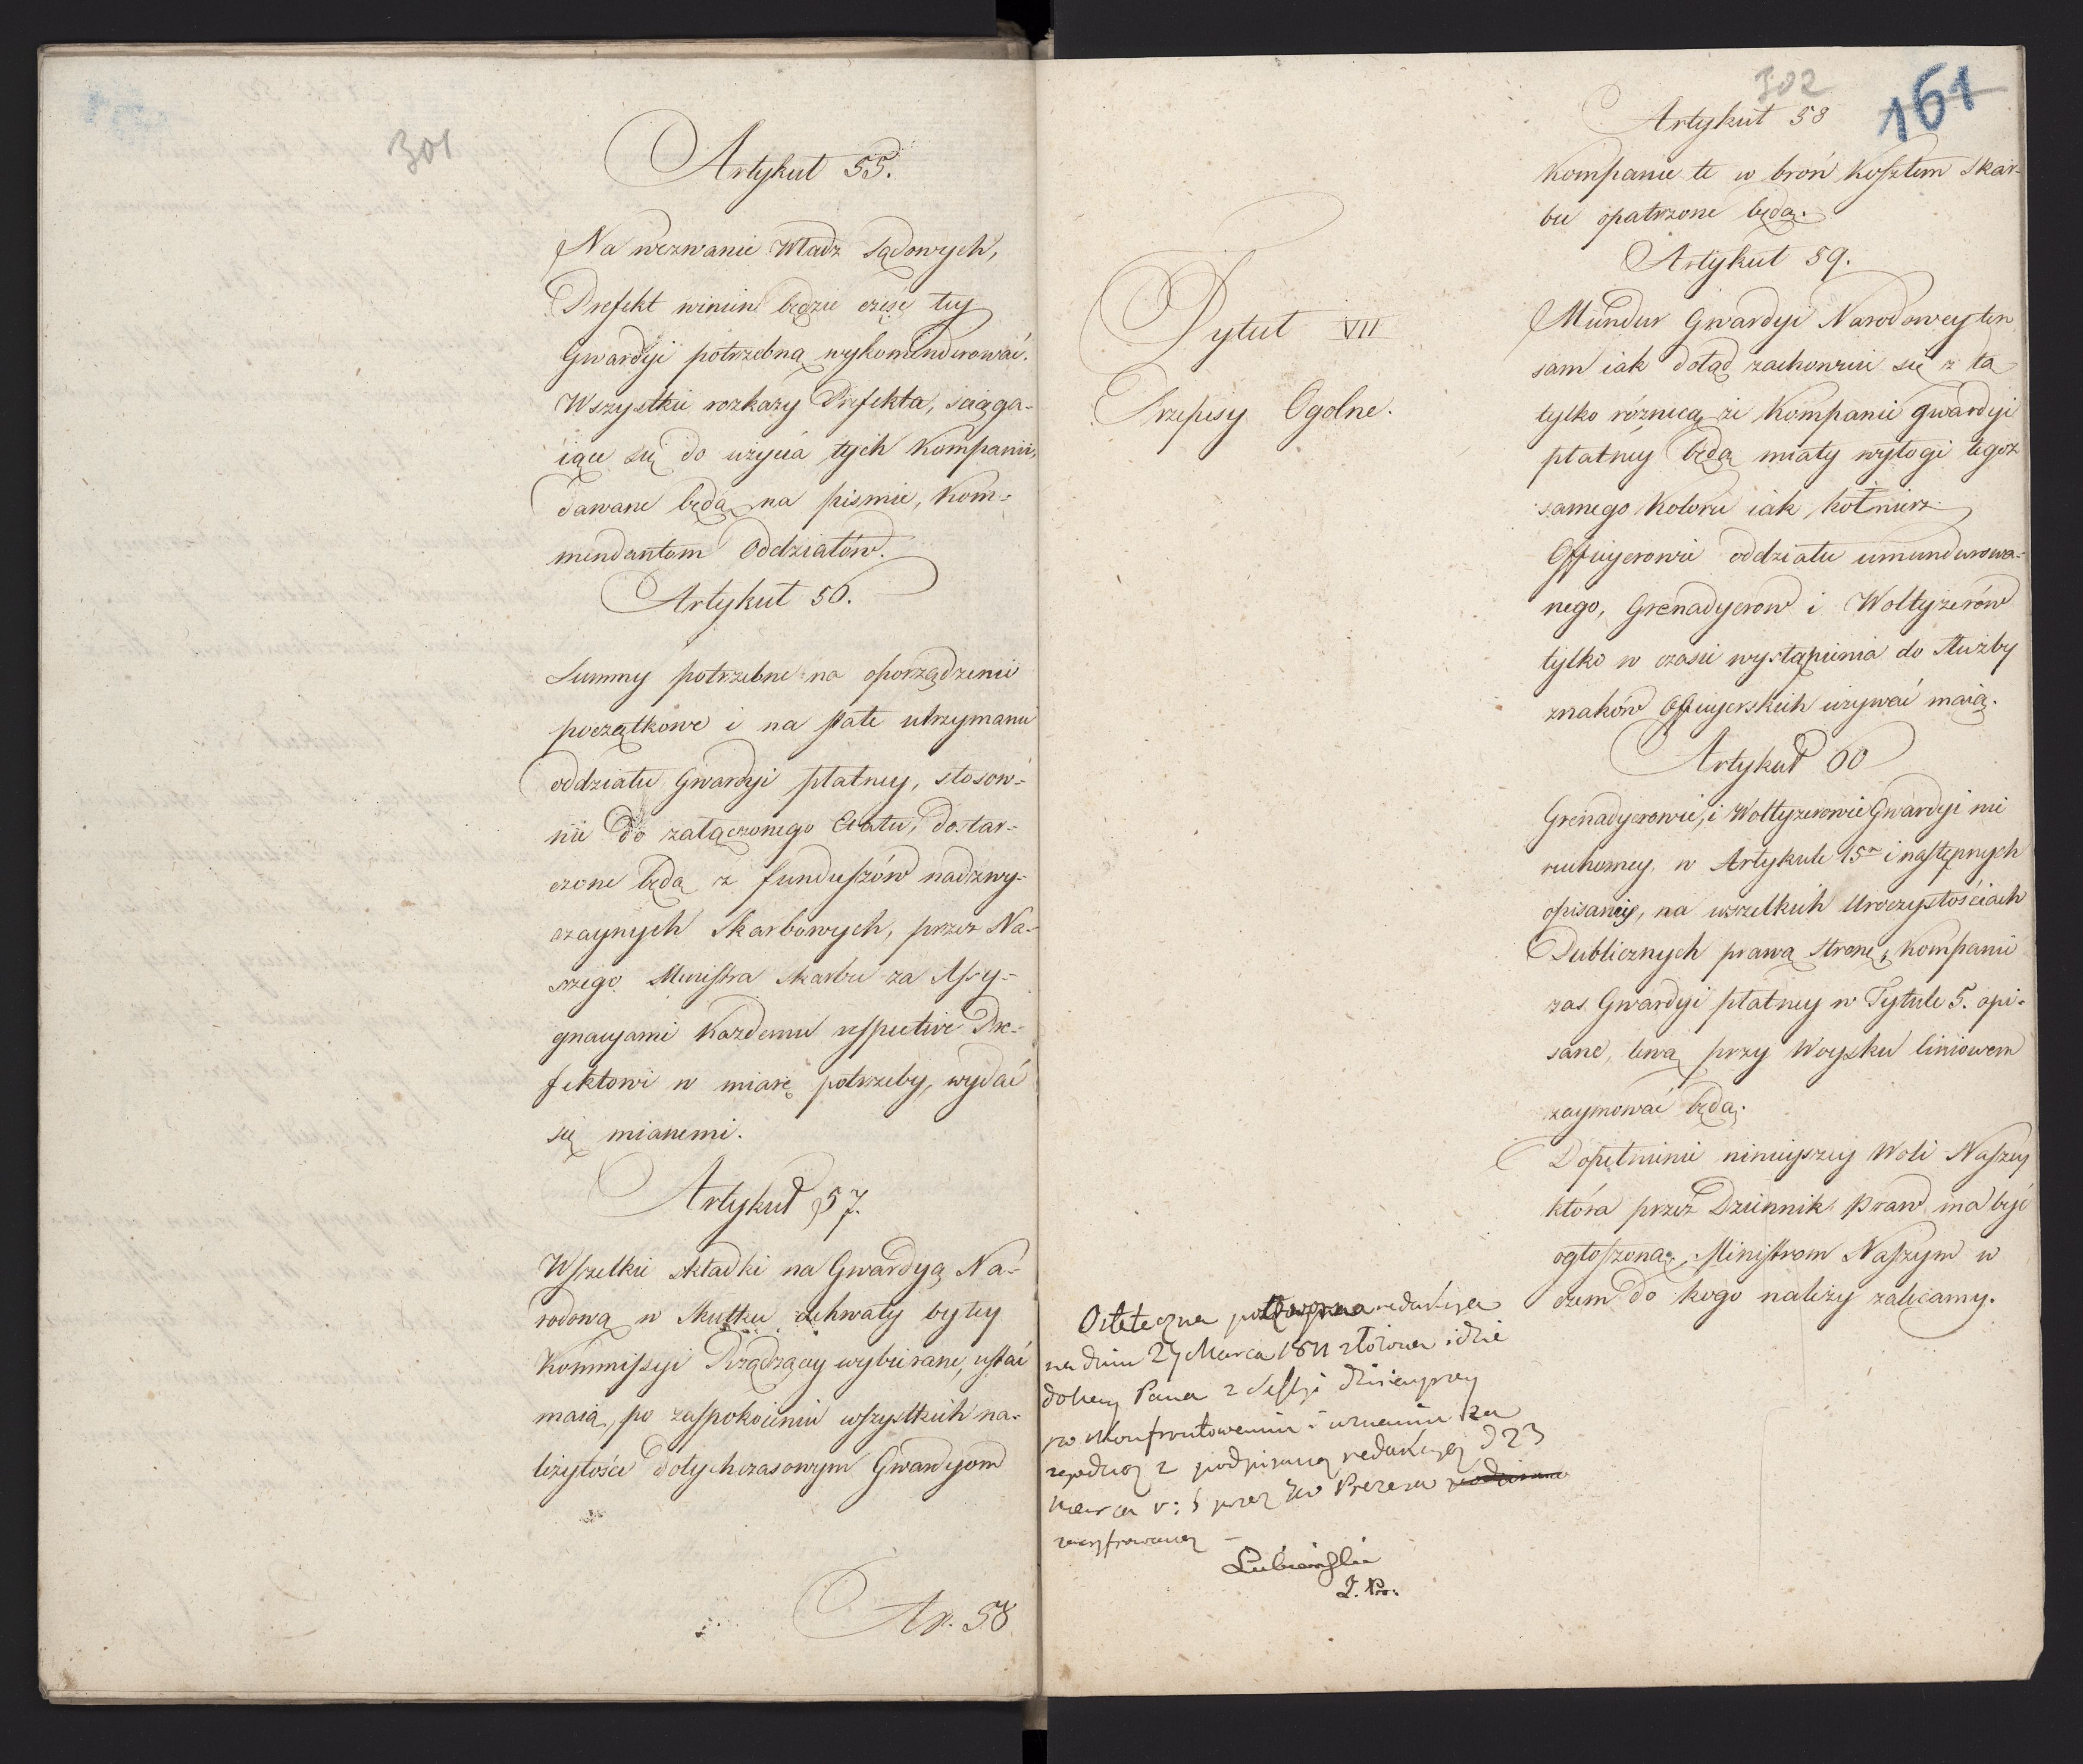 301
Artykuł 55.
Na wezwanie Władz Sądowych,
Prefekt winien będzie część tey
Gwardyi potrzebną wykommenderować.
Wszystkie rozkazy Prefekta, ściąga-
iące się do użycia tych Kompanii,
dawane będą na pismie, Kom-
mendantom Oddziałów.
Artykuł 56.
Summy potrzebne na oporządzenie
początkowe i na stałe utrzymanie
oddziału Gwardyi płatney, stosow-
nie do załączonego Etatu, dostar-
czone będą z funduszów nadzwy-
czaynych Skarbowych, przez Na-
szego Ministra Skarbu za Assy-
gnacyami każdemu respective Pre-
fektowi w miarę potrzeby, wydać
się mianemi.
Artykuł 57.
Wszelkie składki na Gwardyą Na-
rodową w skutku uchwały byłey
Kommissyi Rządzącey wybierane, ustać
maią, po zaspokoieniu wszystkich na-
leżytości dotychczasowym Gwardyom
Ar. 58
302
161
Artykuł 58
Kompanie te w broń kosztem Skar-
bu opatrzone będą.
Tytuł VII
Przepisy Ogolne.
Artykuł 59.
Mundur Gwardyi Narodowey ten
sam iak dotąd zachowuie się z tą
tylko róznicą że Kompanie gwardyi
płatney będą miały wyłogi tegoż
samego Koloru iak kołnierz
Officyerowie oddziału umundurowa-
nego, Grenadyerow i Woltyzerów
tylko w czasie wystąpienia do służby
znaków Officyerskich używać maią.
Artykuł 60
Grenadyerowie, i Woltyzerowie Gwardyi nie
ruchomey, w Artykule 15m i następnych
opisaney, na wszelkich Uroczystościach
Publicznych prawą stronę, Kompanie
zas Gwardyi płatney w Tytule 5. opi-
sane, lewą przy Woysku liniowem
zaymować będą.
Dopełnienie ninieyszey Woli Naszey
która przez Dziennik Praw ma być
ogłoszona, Ministrom Naszym w
czem do kogo należy zalecamy.
Ostateczna redakcya
na dniu 27 Marca 1811 złożona idzie
do Pana z Sessyi dzisieyszey
po skonfrontowaniu i uznaniu za
zgodną z podpisaną redakcyą d 23
Marca r: b przez JW Prezesa
Lubieński